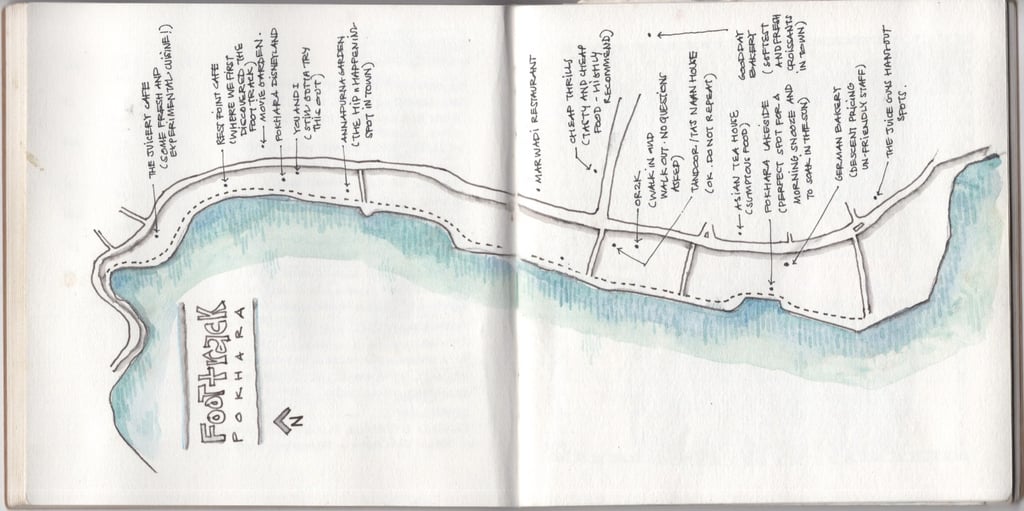 THE JUICERY CAFE
(SOME FRESH AND
EXPERIMENTAL CUISINE!)
REST POINT CAFE
(WHERE WE FIRST
DISCOVERED THE
FOOTTRACK)
MOVIE GARDEN.
POKHARA DISNEYLAND
YOU AND I
(STILL GOTTA TRY
THIS OUT)
ANNAPURNA GARDEN
(THE HIP N HAPPENING
SPOT IN TOWN)
MARWADI RESTAURANT
CHEAP THRILLS
(TASTY AND CHEAP
FOOD - HIGHLY
RECOMMEND)
OR2K
(WALK IN AND
WALK OUT. NO QUESTIONS
ASKED)
TANDOOR/TAJ NAAN HOUSE
(OK. DO NOT REPEAT)
GOOD DAY
BAKERY
(SOFTEST
AND FRESH
CROISSANTS
IN TOWN)
ASIAN TEA HOUSE
(SUMPTIOUS FOOD)
POKHARA LAKESIDE
(PERFECT SPOT FOR A
MORNING SNOOZE AND
TO SOAK IN THE SUN)
GERMAN BAKERY
(DESCENT PRICING
UN-FRIENDLY STAFF)
THE JUICE GUYS HANG-OUT
SPOTS.
FOOTTRACK
POKHARA
N